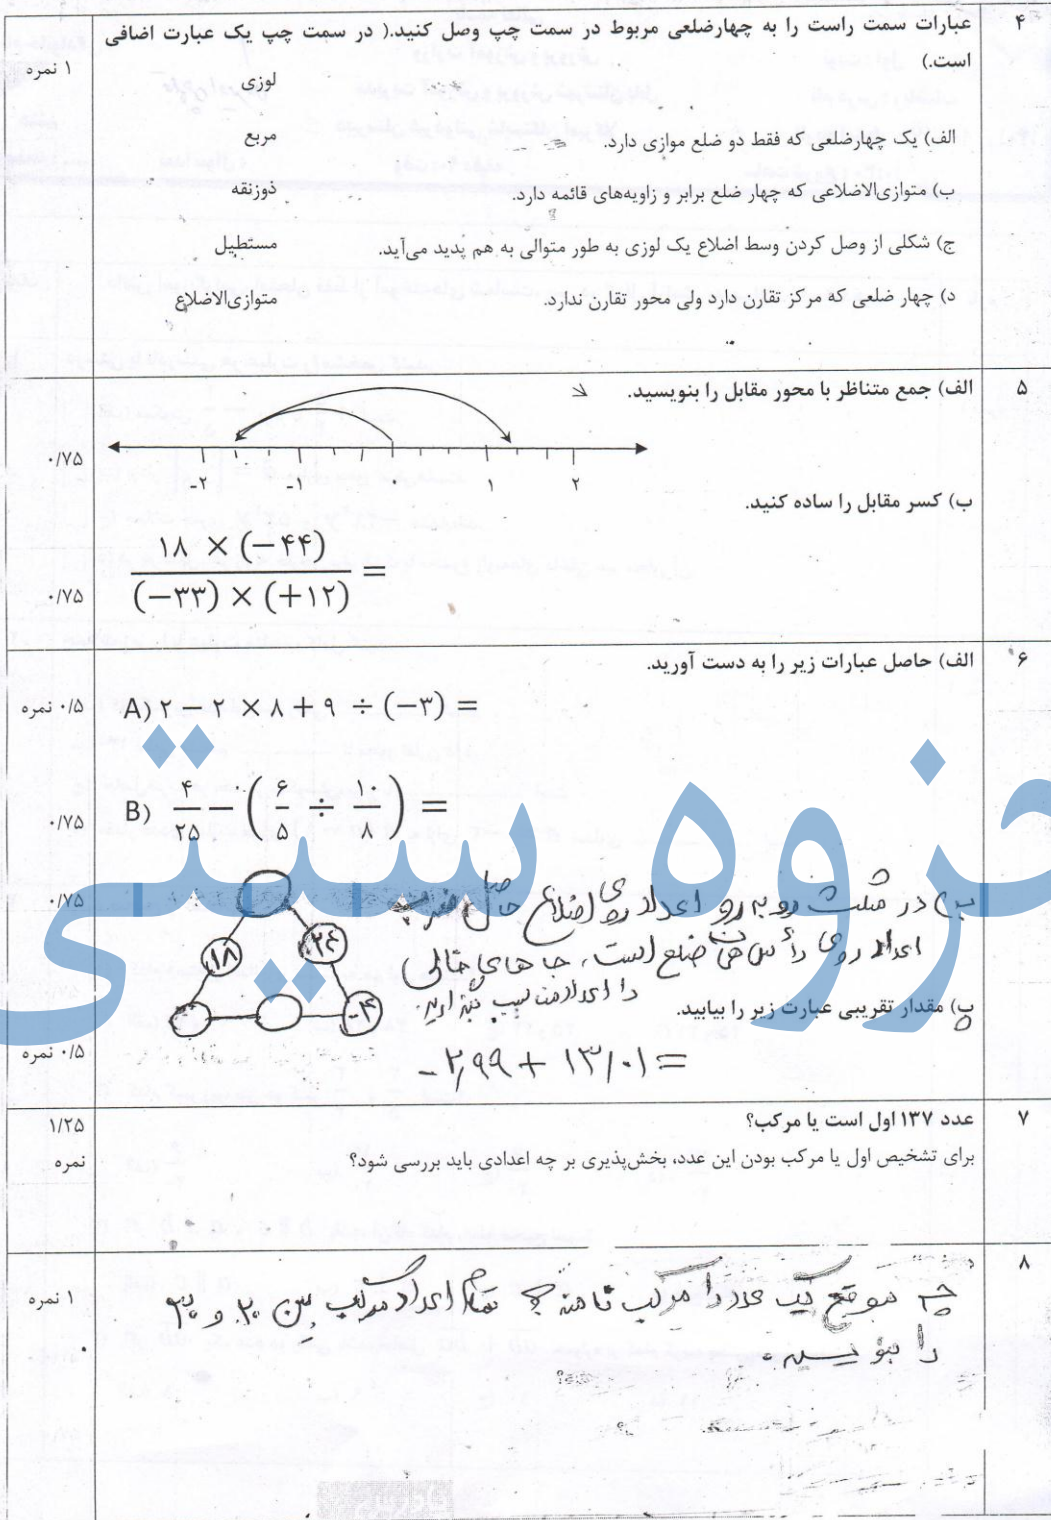 ۴
عبارات سمت راست را به چهارضلعی مربوط در سمت چپ وصل کنید.( در سمت چپ یک عبارت اضافی
است.)
۱ نمره
لوزی
الف) یک چهارضلعی که فقط دو ضلع موازی دارد.
مربع
ب) متوازی‌الاضلاعی که چهار ضلع برابر و زاویه‌های قائمه دارد.
ذوزنقه
ج) شکلی از وصل کردن وسط اضلاع یک لوزی به طور متوالی به هم پدید می‌آید.
مستطیل
د) چهار ضلعی که مرکز تقارن دارد ولی محور تقارن ندارد.
متوازی‌الاضلاع
۵
الف) جمع متناظر با محور مقابل را بنویسید.
۰/۷۵
-۲ -۱ ۰ ۱ ۲
ب) کسر مقابل را ساده کنید.
۱۸ × (−۴۴)
(−۳۳) × (+۱۲)
=
۰/۷۵
۶
الف) حاصل عبارات زیر را به دست آورید.
A) ۲ − ۲ × ۸ + ۹ ÷ (−۳) =
۰/۵ نمره
B) ۴/۲۵ − (۶/۵ ÷ ۱۰/۸) =
۰/۷۵
ب) در مثلث روبه رو اعداد روی اضلاع حاصل ضرب
۰/۷۵
اعداد روی رأس های ضلع است، جا های خالی
را اعداد مناسب بگذارید.
۱۸
۲۴
-۳
پ) مقدار تقریبی عبارت زیر را بیابید.
- ۲٫۹۹ + ۱۳/۰۱ =
۰/۵ نمره
۷
عدد ۱۳۷ اول است یا مرکب؟
۱/۲۵
برای تشخیص اول یا مرکب بودن این عدد، بخش‌پذیری بر چه اعدادی باید بررسی شود؟
نمره
۸
چه موقع یک عدد را مرکب نامند؟ تمام اعداد مرکب بین ۲۰ و ۳۰
۱ نمره
را بنویسید.
جزوه سیتی